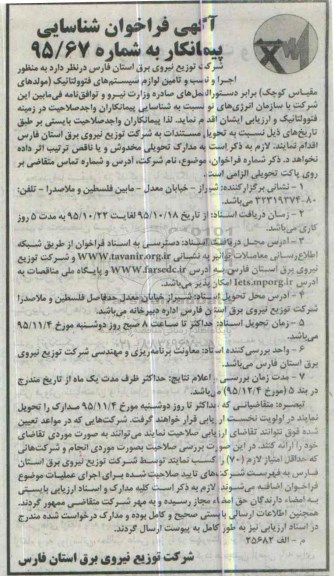 آگهی فراخوان شناسایی
پیمانکار به شماره ۹۵/۶۷
شرکت توزیع نیروی برق استان فارس درنظر دارد به منظور
اجرا و نصب و تامین لوازم سیستم‌های فتوولتائیک (مولدهای
مقیاس کوچک) برابر دستورالعمل‌های صادره وزارت نیرو و توافق‌نامه فی‌مابین این
شرکت با سازمان انرژی‌های نو نسبت به شناسایی پیمانکاران واجدصلاحیت در زمینه
فتوولتائیک و ارزیابی ایشان اقدام نماید. لذا پیمانکاران واجدصلاحیت بایستی بر طبق
تاریخ‌های ذیل نسبت به تحویل مستندات به شرکت توزیع نیروی برق استان فارس
اقدام نمایند. لازم به ذکر است به مدارک تحویلی مخدوش و یا ناقص ترتیب اثر داده
نخواهد شد. ذکر شماره فراخوان، موضوع، نام شرکت، آدرس و شماره تماس متقاضی بر
روی پاکت تحویلی الزامی است.
۱ – نشانی برگزارکننده: شیراز – خیابان معدل – مابین فلسطین و ملاصدرا – تلفن:
۸۰-۳۲۳۱۹۲۷۴ می‌باشد.
۲ – زمان دریافت اسناد: از تاریخ ۹۵/۱۰/۱۸ لغایت ۹۵/۱۰/۲۲ به مدت ۵ روز
کاری می‌باشد.
۳ – آدرس محل دریافت اسناد: دسترسی به اسناد فراخوان از طریق شبکه
اطلاع‌رسانی معاملات توانیر به نشانی www.tavanir.org.ir و شرکت توزیع
نیروی برق استان فارس به آدرس www.farsedc.ir و پایگاه ملی مناقصات به
آدرس Iets.mporg.ir امکان پذیر می‌باشد.
۴ – آدرس محل تحویل اسناد: شیراز خیابان معدل حدفاصل فلسطین و ملاصدرا
شرکت توزیع نیروی برق استان فارس اداره دبیرخانه می‌باشد.
۵ – زمان تحویل اسناد: حداکثر تا ساعت ۸ صبح روز دوشنبه مورخ ۹۵/۱۱/۴
می‌باشد.
۶ – واحد بررسی‌کننده اسناد: معاونت برنامه‌ریزی و مهندسی شرکت توزیع نیروی
برق استان فارس می‌باشد.
۷ – مدت زمان بررسی و اعلام نتایج: حداکثر ظرف مدت یک ماه از تاریخ مندرج
در بند ۵ (مورخ ۹۵/۱۲/۴) می‌باشد.
تبصره: متقاضیانی که حداکثر تا روز دوشنبه مورخ ۹۵/۱۱/۴ مدارک را تحویل
نمایند در اولویت نخست ارزیابی قرار خواهند گرفت. شرکت‌هایی که در مواعد تعیین
شده فوق نتوانند تقاضای ارزیابی صلاحیت نمایند می‌توانند به صورت موردی تقاضای
خود را ارائه کنند. در این صورت بررسی صلاحیت بصورت موردی انجام و شرکت‌هائی
که حداقل امتیاز لازم (۷۰) را کسب نمایند توسط شرکت توزیع نیروی برق استان
فارس به فهرست شرکت‌های تایید صلاحیت شده برای اجرای عملیات موضوع
فراخوان اضافه می‌شوند. لازم به ذکر است کلیه مدارک و اسناد ارزیابی بایستی
به امضاء دارندگان حق امضاء مجاز رسیده و به مهر شرکت متقاضی ممهور گردند.
همچنین اطلاعات ارسالی بایستی صحیح و کامل بوده و مدارک درخواست شده مندرج
در اسناد ارزیابی نیز به طور کامل به پیوست ارسال گردند.
م – الف ۲۵۶۸۲
شرکت توزیع نیروی برق استان فارس